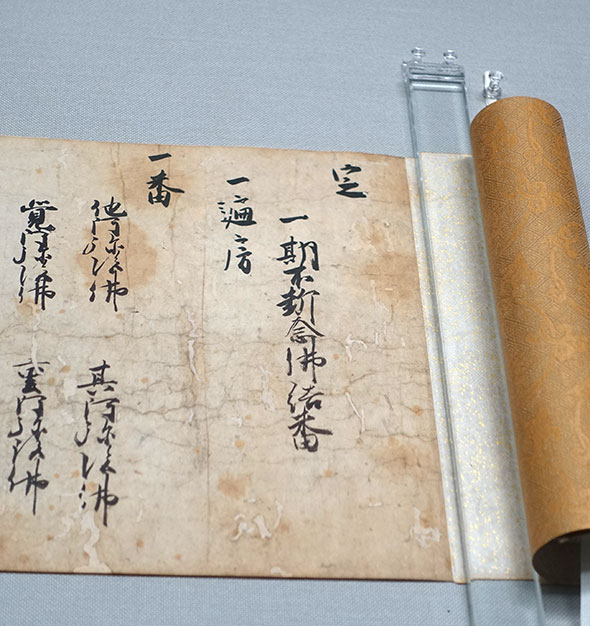 定
一期不断念佛結番
一遍房
一番
他阿弥陀佛
其阿弥陀佛
覚阿弥陀佛
重阿弥陀佛